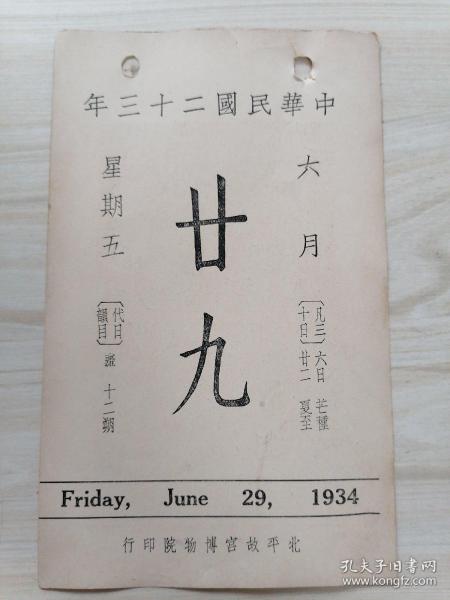 中華民國二十三年
六月
〔凡三十日〕
六日芒種
廿二夏至
廿九
星期五
〔代日韻目〕
豔
十二朔
Friday, June 29, 1934
北平故宮博物院印行
孔夫子旧书网
www.kongfz.com